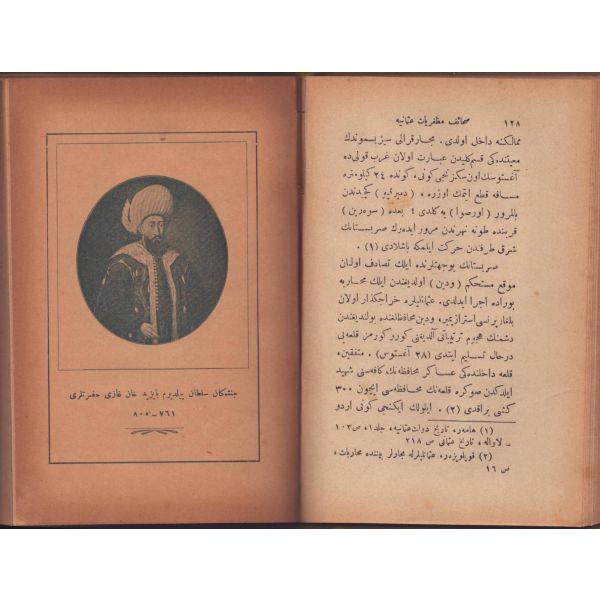 جنتمكان سلطان ييلديرم بايزيد خان غازى حضرتلرى
٧٦١ــ٨٠٥
١٢٨ صحائف مظفريات عثمانيه
ممالكنه داخل اولدى. مجار قرالى سيزيسموندك
معيتنده كى قسم كليدن عبارت اولان غرب قولى ده
آغستوسك اون سكزنجى كونى، كونده ٢٤ كيلومتره
مسافه قطع ايتمك اوزره، (دميرقپو) كچيدندن
بالمرور (اورصوا) يه كلدى؛ بعده (سوه رين)
قربنده طونه نهرندن مرور ايدهرك صربستانك
شرق طرفندن حركت ايلمكه باشلادى (١).
صربستانك بوجهتلرنده ايلك تصادف اولنان
موقع مستحكم (ودين) اولديغندن ايلك محاربه
بوراده اجرا ايدلدى. عثمانليلره خراجكذار اولان
بلغار پرنسى استرازيمير، ودين محافظلغنده بولنديغندن
دشمنك هجوم ترتيباتى آلديغنى كورر كورمز قلعه يى
درحال تسليم ايتدى (٢٨ آغستوس). متفقين،
قلعه داخلنده كى عساكر محافظه نك كافه سنى شهيد
ايلدكدن صوكره قلعه نك محافظه سى ايچون ٣٠٠
كشى براقدى (٢). ايلولك ايكنجى كونى اردو
(١) هامهر، تاريخ دولت عثمانيه، جلد ١، ص ١٠٣
ــ لاواله، تاريخ عثمانى ص ٢١٨
(٢) قوپلويزهر، عثمانليلرله مجارلر بيننده محاربات،
ص ١٦